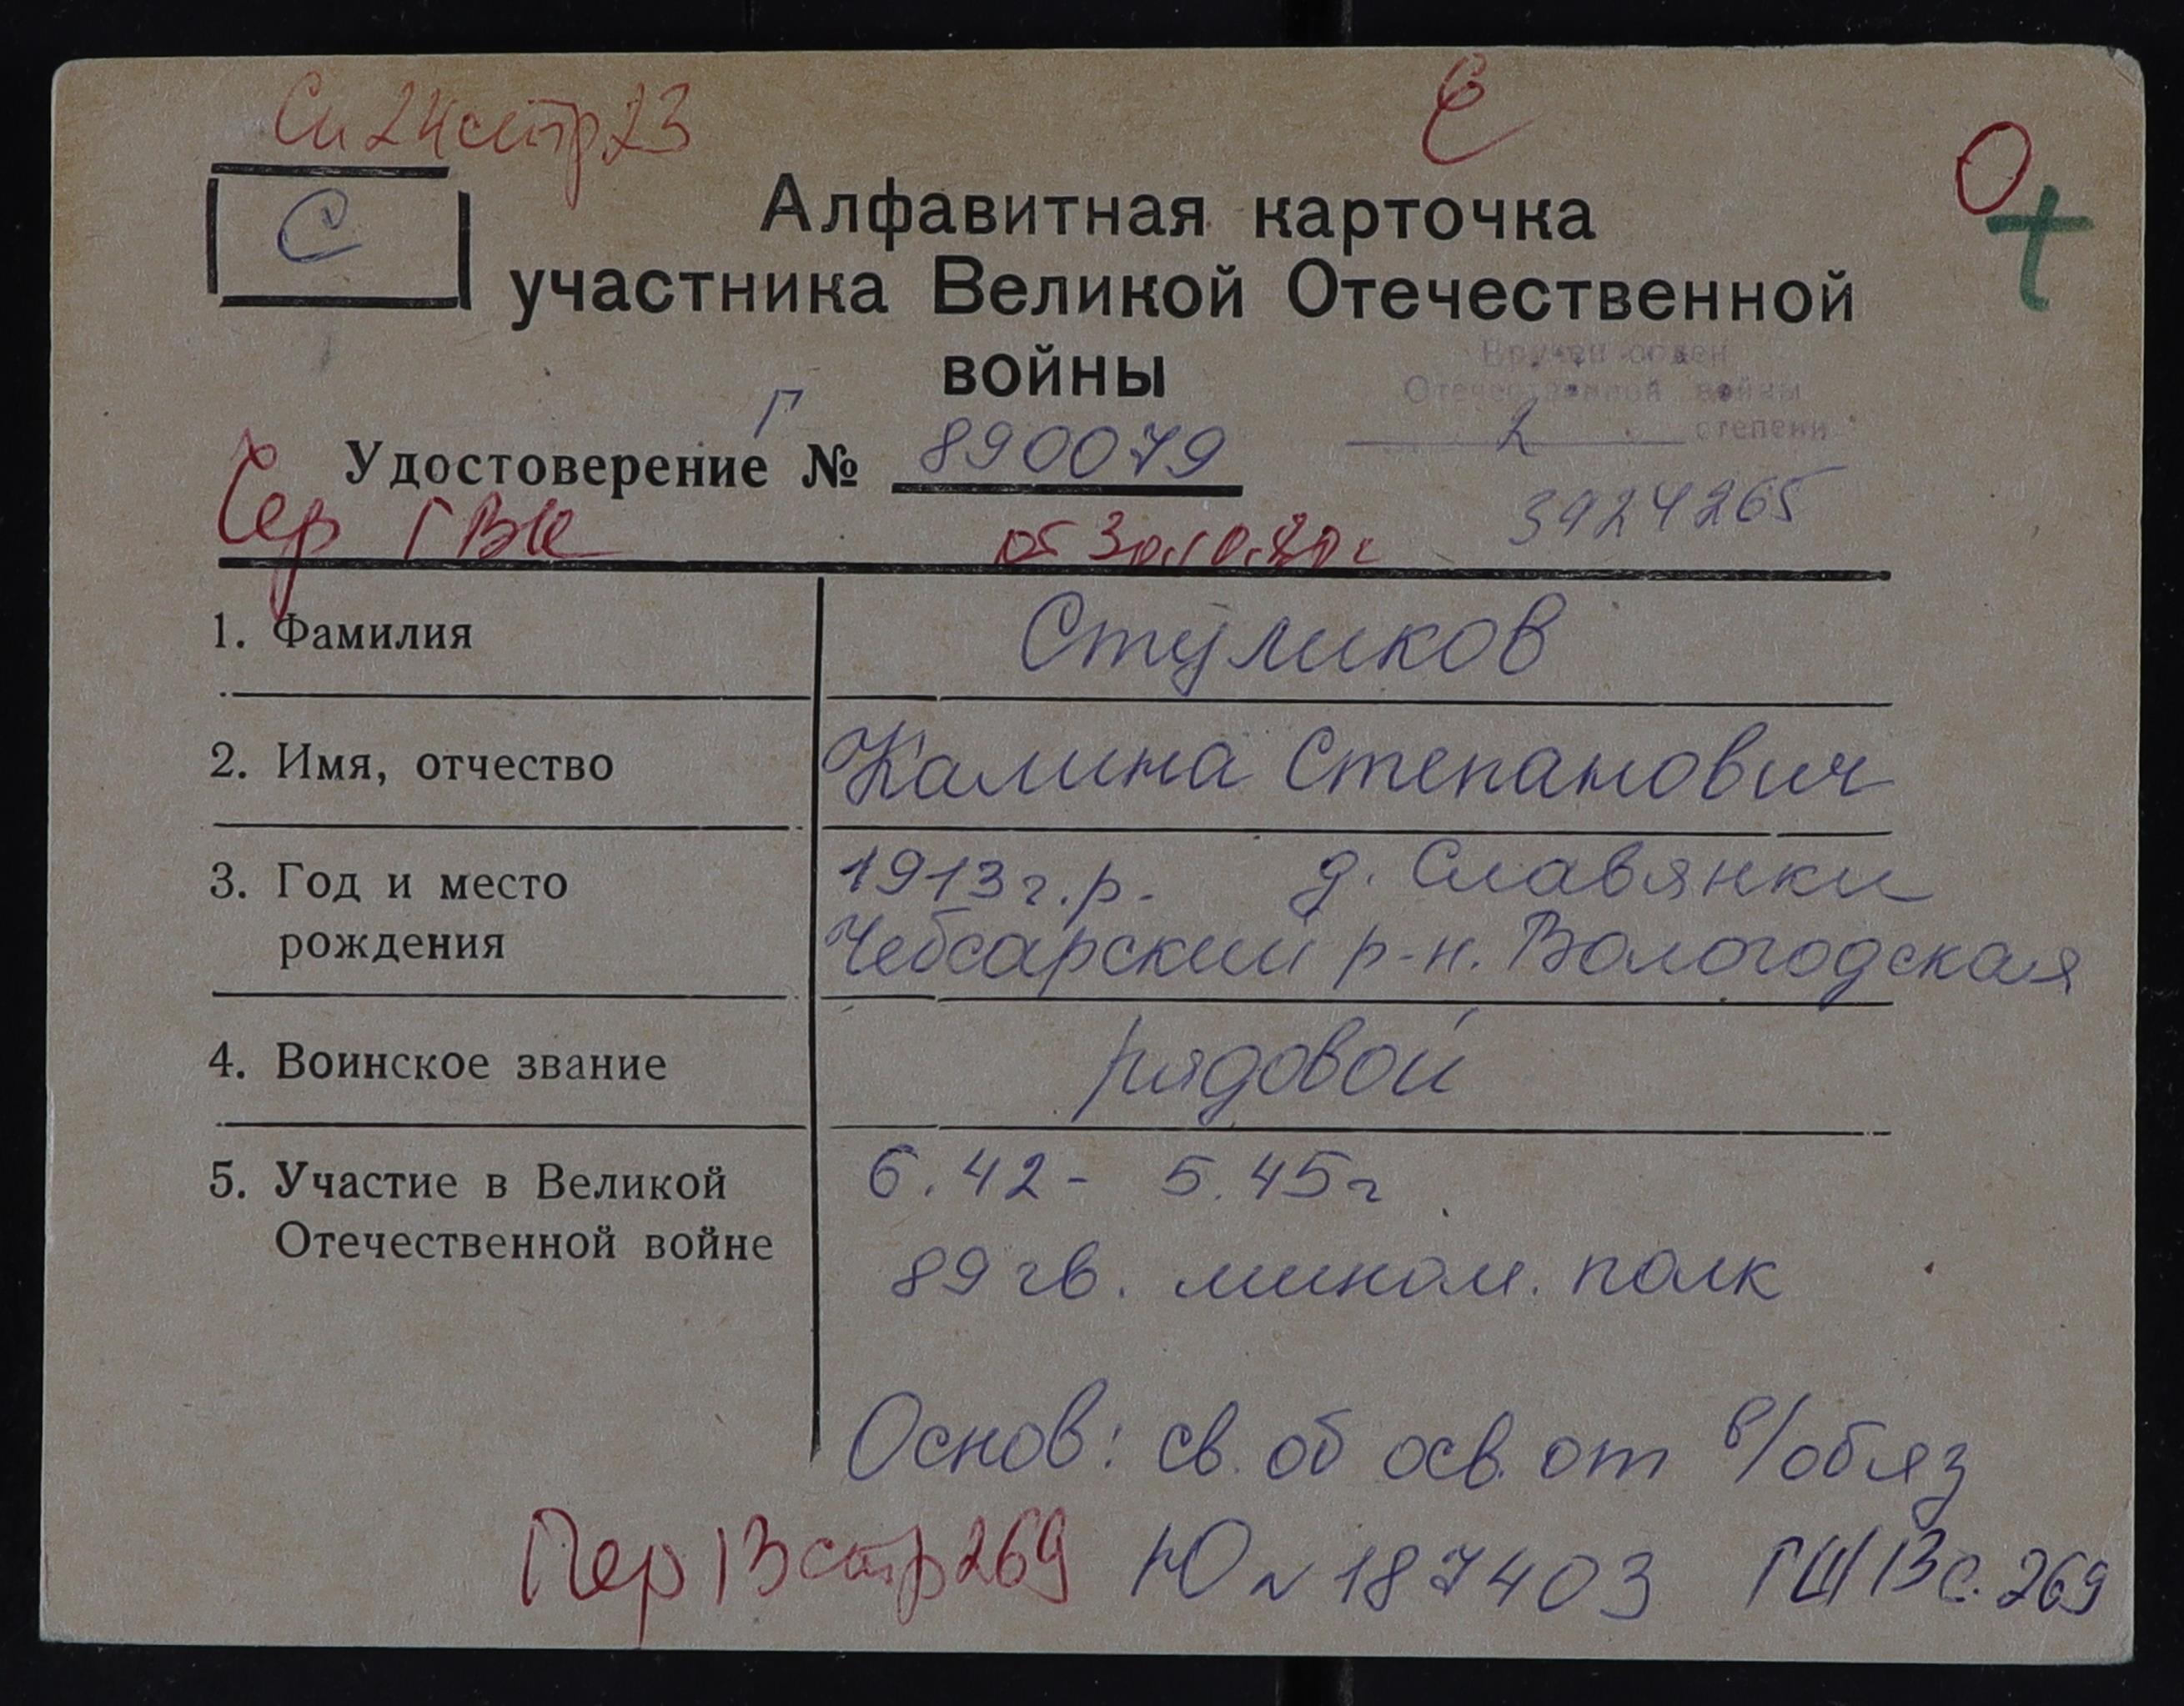 Сп 24 стр 23
С
Алфавитная карточка
участника Великой Отечественной
войны
Вручен орден
Отечественной войны
2 степени
Г
Удостоверение № 890079
Чер ГВК от 30.10.80г
3924265
1. Фамилия Стуликов
2. Имя, отчество Калина Степанович
3. Год и место 1913 г.р. д. Славянки
рождения Чебсарский р-н. Вологодская
4. Воинское звание рядовой
5. Участие в Великой 6.42 - 5.45г
Отечественной войне 89 гв. мином. полк
Основ: св. об осв. от в/обяз
Пер 13 стр 269 Ю № 187403 ГШ 13 с. 269